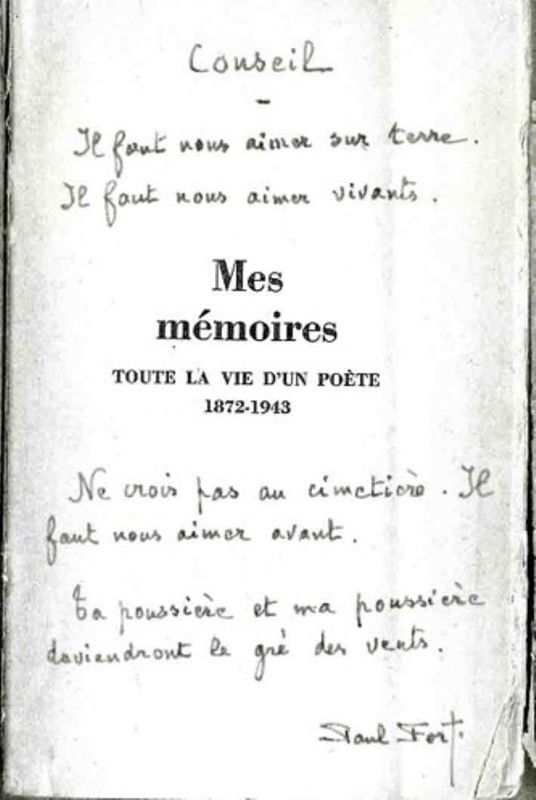 Conseil
-
Il faut nous aimer sur terre.
Il faut nous aimer vivants.
Mes
mémoires
TOUTE LA VIE D'UN POÈTE
1872-1943
Ne crois pas au cimetière. Il
faut nous aimer avant.
Ta poussière et ma poussière
deviendront le gré des vents.
Paul Fort.